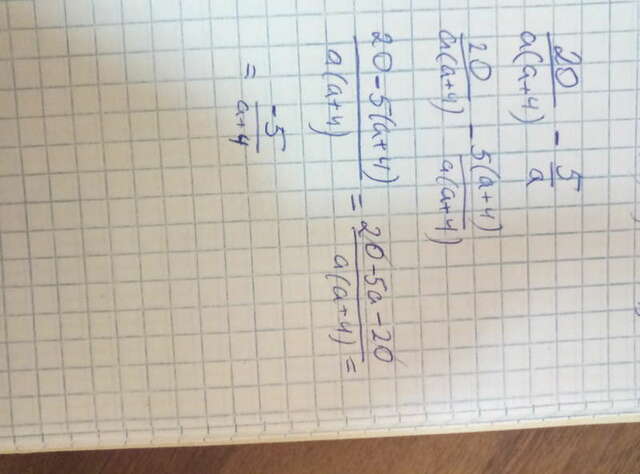 20/a(a+4) - 5/a
20/a(a+4) - 5(a+4)/a(a+4)
20-5(a+4)/a(a+4) = 20-5a-20/a(a+4) =
= -5/a+4